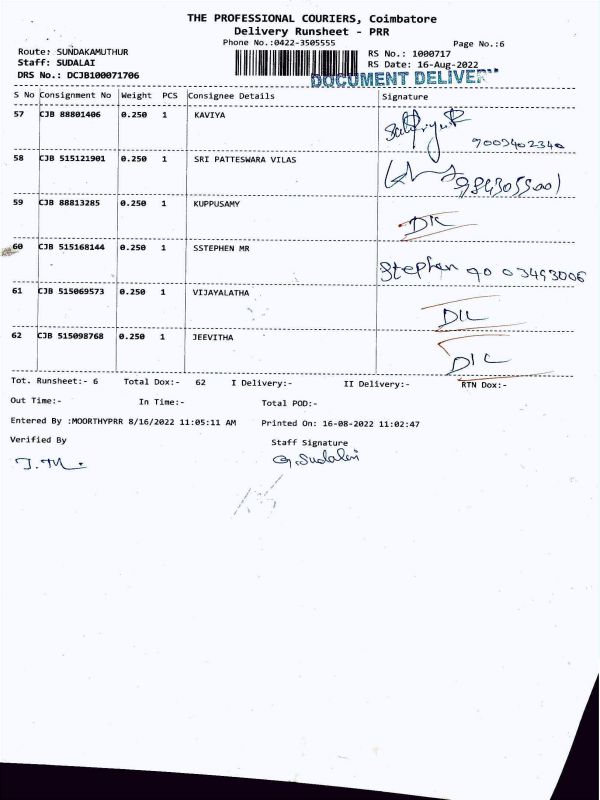 THE PROFESSIONAL COURIERS, Coimbatore
Delivery Runsheet - PRR
Phone No.:0422-3505555 Page No.:6
Route: SUNDAKAMUTHUR RS No.: 1000717
Staff: SUDALAI RS Date: 16-Aug-2022
DRS No.: DCJB100071706 DOCUMENT DELIVER
S No Consignment No Weight PCS Consignee Details Signature
57 CJB 88801406 0.250 1 KAVIYA
9003402340
58 CJB 515121901 0.250 1 SRI PATTESWARA VILAS
9843055001
59 CJB 88813285 0.250 1 KUPPUSAMY DIL
60 CJB 515168144 0.250 1 SSTEPHEN MR
Stephen 90 03493006
61 CJB 515069573 0.250 1 VIJAYALATHA DIL
62 CJB 515098768 0.250 1 JEEVITHA DIL
Tot. Runsheet:- 6 Total Dox:- 62 I Delivery:- II Delivery:- RTN Dox:-
Out Time:- In Time:- Total POD:-
Entered By :MOORTHYPRR 8/16/2022 11:05:11 AM Printed On: 16-08-2022 11:02:47
Verified By Staff Signature
G.Sudalai